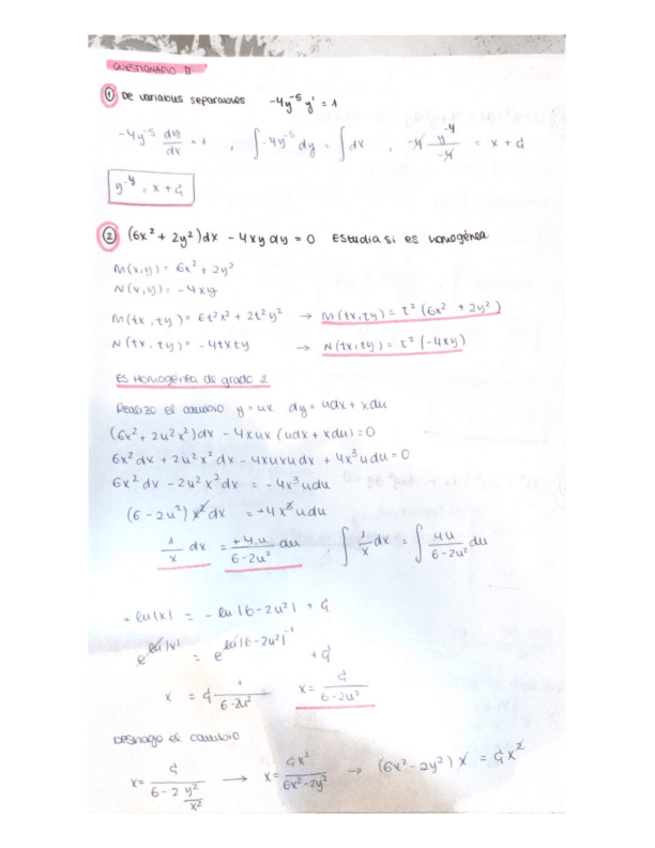 CUESTIONARIO 11
① De variables separables -4y⁻⁵ y' = 1
-4y⁻⁵ dy/dx = 1 , ∫-4y⁻⁵ dy = ∫dx , -4 y⁻⁴/-4 = x + C
y⁻⁴ = x + C
② (6x² + 2y²)dx - 4xy dy = 0 Estudia si es homogénea
M(x,y) = 6x² + 2y²
N(x,y) = -4xy
M(tx,ty) = 6t²x² + 2t²y² → M(tx,ty) = t² (6x² + 2y²)
N(tx,ty) = -4txty → N(tx,ty) = t² (-4xy)
Es Homogénea de grado 2
Realizo el cambio y = ux dy = udx + xdu
(6x² + 2u²x²)dx - 4xux (udx + xdu) = 0
6x²dx + 2u²x²dx - 4xuxudx + 4x³udu = 0
6x²dx - 2u²x²dx = -4x³udu
(6 - 2u²) x²dx = +4x³udu
1/x dx = +4u/6-2u² du . ∫ 1/x dx = ∫ 4u/6-2u² du
+ ln|x| = - ln|6-2u²| + C
e^ln|x| = e^ln|6-2u²|⁻¹ + C
x = C 1/6-2u² x = C/6-2u²
Deshago el cambio
x = C/6-2 y²/x² → x = Cx²/6x²-2y² → (6x² - 2y²) x = C x²